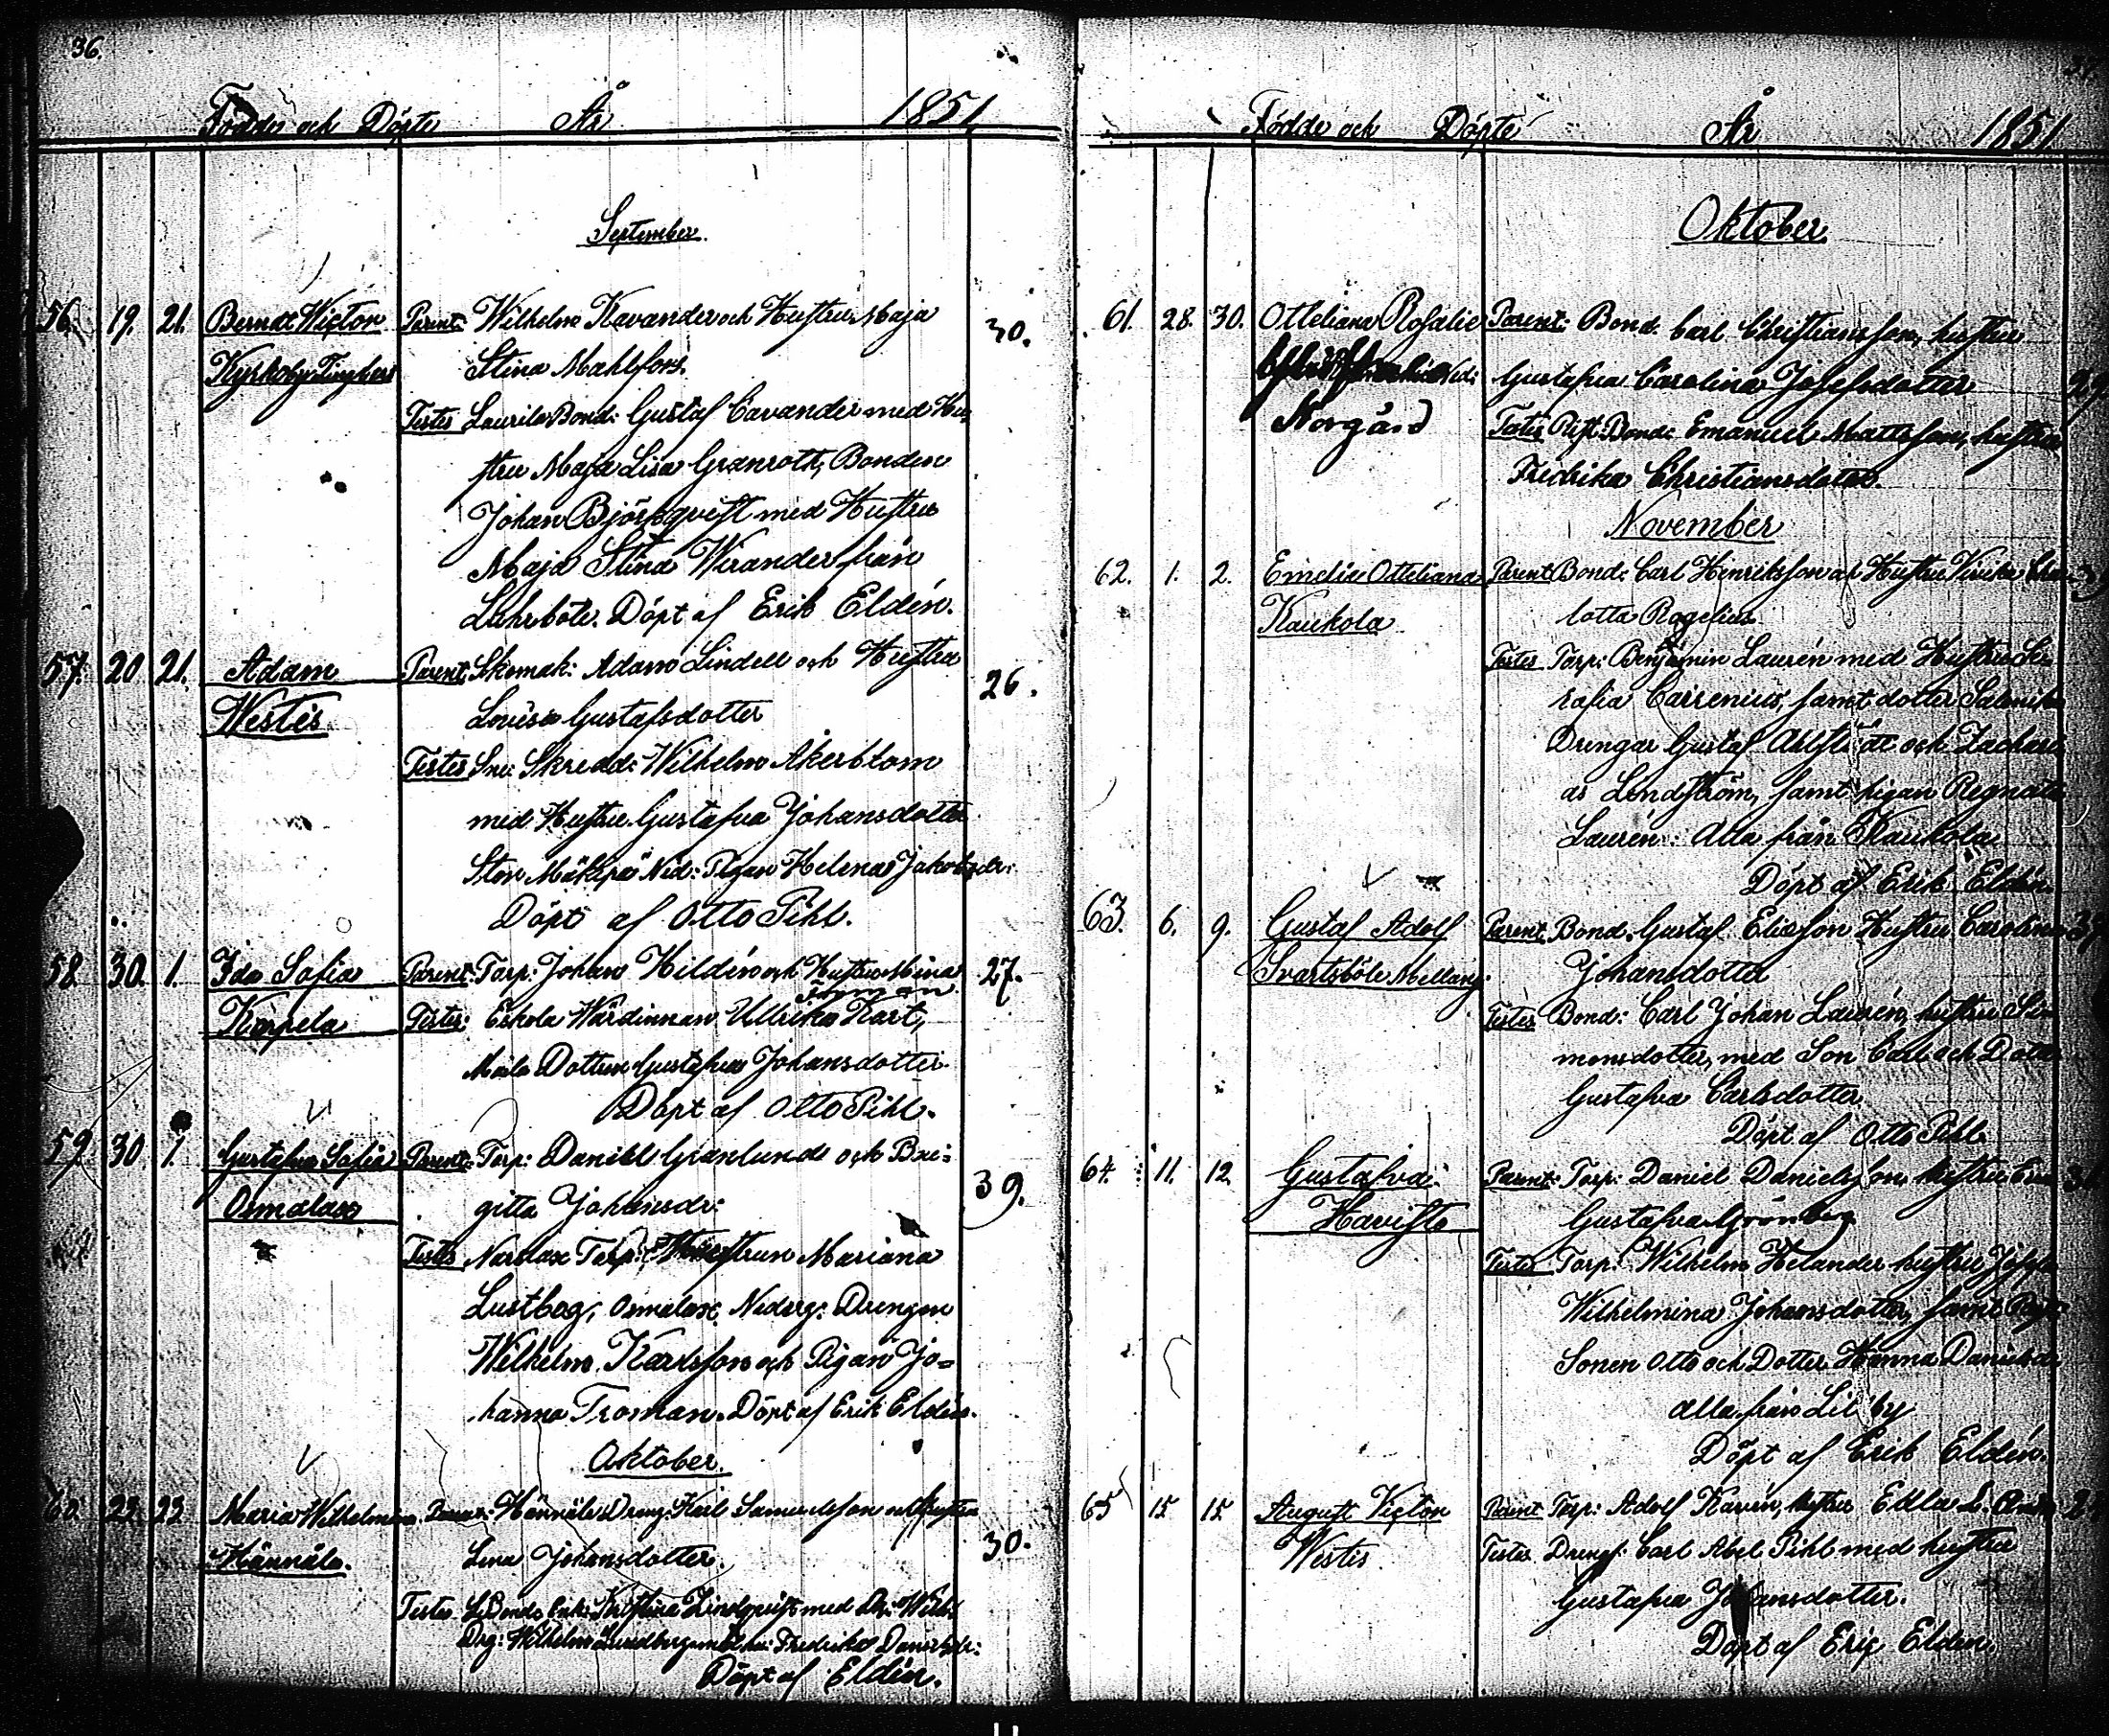 36.
Födde och Döpte År 1851
September
56. 19. 21. Berndt Wictor Parent: Wilhelm Kavander och Hustru Maja 30.
Kyrkoby Stina Mahlfors.
Testes Laurila Bond: Gustaf Cavander med Hu-
stru Maja Lisa Granroth, Bonden
Johan Björkqvist med Hustru
Maja Stina Wirander från
Lahrböle. Döpt af Erik Eldén.
57. 20 21. Adam Parent: Skomak: Adam Lindell och Hustru 26.
Westis Lovisa Gustafsdotter
Testes Skredd: Wilhelm Åkerblom
med Hustru Gustafva Johansdotter
Stor Mäkipä Ned: Pigan Helena Jakobsdr:
Döpt af Otto Pihl.
58. 30. 1. Ida Sofia Parent: Torp: Johan Hildén och Hustru Mina 27.
Froman
Karpela Testes: Eskola Wärdinnan Ullrika Kart,
Dottern Gustafva Johansdotter.
Döpt af Otto Pihl.
59 30 1. Gustafva Sofia Parent: Torp: Daniel Granlund och Bri- 39.
Osmalax gitta Johansdr:
Testes Narslax Torp: Hustrun Mariana
Lustbeg, Osmalax Nederg: Drengen
Wilhelm Karlsson och Pigan Jo-
hanna Troman. Döpt af Erik Eldén.
Oktober.
60. 22. 23 Maria Wilhelmina Parent: Hännälä Dreng: Karl Samuelsson och Hustru 30.
Hännälä. Lena Johansdotter.
Testes Bond: Enk: Kristina Lindqvist med Dr: Wilh:
Drg: Wilhelm Lundberg med hu: Fredrika Danielsdr:
Döpt af Eldén.
37.
Födde och Döpte År 1851
Oktober
61. 28. 30. Otteliana Rosalie Parent: Bond. Carl Christiansson, hustru
Ned: Gustafva Carolina Josefsdotter 29
Norgård Testes Bond: Emanuel Mattsson, hustru
Fredrika Christiansdotter.
November
62. 1. 2. Emelie Otteliana Parent Bond: Carl Henriksson och Hustru Virika Char-
Kaukola lotta Rogelius
Testes Torp: Benjamin Laurén med Hustru Se-
rafia Carrenius, samt dotter
Drengar Gustaf Ahlstedt och Zachari-
as Lindström, samt pigan Regnata
Laurén: Alla från Kaukola
Döpt af Erik Eldén.
63. 6. 9. Gustaf Adolf Parent. Bond. Gustaf Eliasson Hustru Carolina
Svartsböle Mellang: Johansdotter
Testes Bond: Carl Johan Laurén, hustru Si-
monsdotter, med Son Carl och Dotter
Gustafva Carlsdotter
Döpt af Otto Pihl
64. 11. 12. Gustafva Parent: Torp: Daniel Danielsson, hustru
Havisto Gustafva Grönberg
Testes Torp: Wilhelm Helander hustru
Wilhelmina Johansdotter, samt
Sonen Otto och Dotter Hanna Danielsdr
alla från Lillby
Döpt af Erik Eldén.
65 15 15 August Victor Parent Torp: Adolf Kavén, hustru Edla L.
Westis Testes Dreng: Carl Abel Pihl med hustru
Gustafva Johansdotter.
Döpt af Eric Eldén.